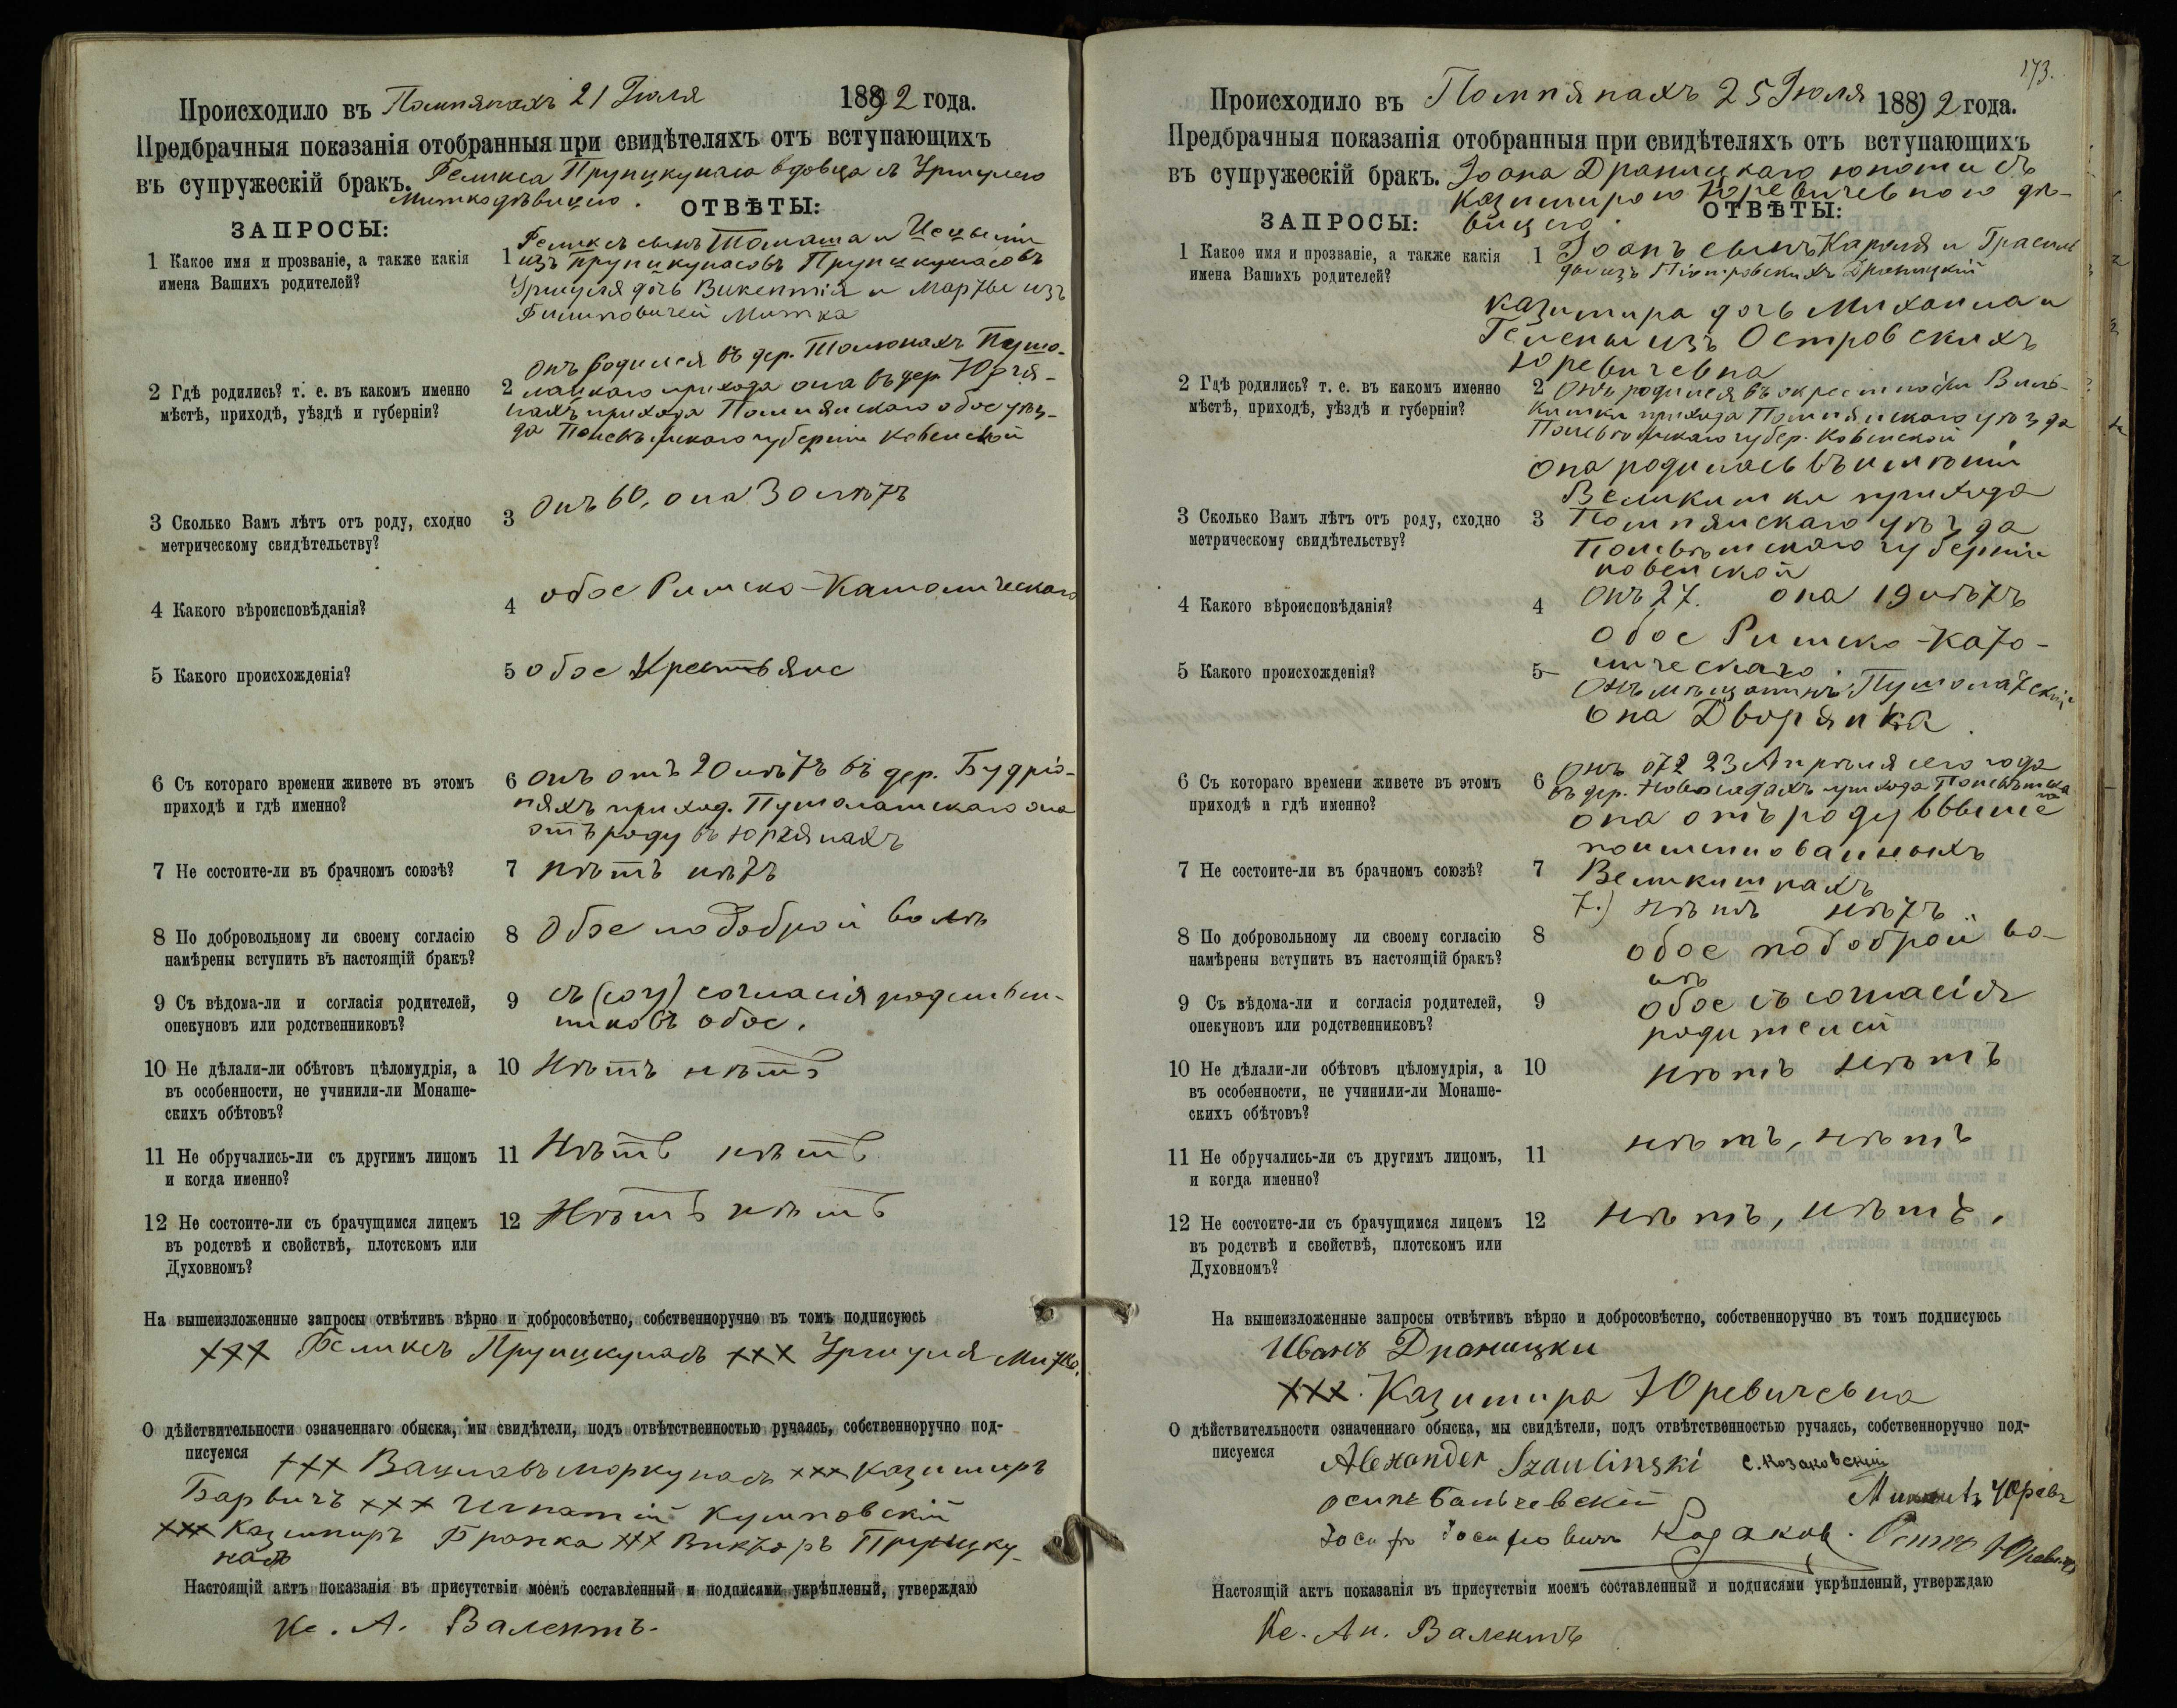 Происходило въ Помпянахъ 21 Іюля 1892 года.
Предбрачныя показанія отобранныя при свидѣтеляхъ отъ вступающихъ
въ супружескій бракъ. Феликса Прунцкунаса вдовца съ Уршулею
Митко дѣвицею.
ЗАПРОСЫ: ОТВѢТЫ:
1 Какое имя и прозваніе, а также какія
имена Вашихъ родителей?
1 Феликсъ сынъ Томаша и
изъ Прунцкунасовъ Прунцкунасовъ
Уршуля дочь Викентія и Марты изъ
Филиповичей Митка
2 Гдѣ родились? т. е. въ какомъ именно
мѣстѣ, приходѣ, уѣздѣ и губерніи?
2 онъ родился въ дер. Томонахъ Пушо-
латскаго прихода она въ дер. Юргя-
нахъ прихода Помпянскаго обое уѣз-
да Поневѣжскаго губерніи Ковенской
3 Сколько Вамъ лѣтъ отъ роду, сходно
метрическому свидѣтельству?
3 Онъ 60, она 30 лѣтъ
4 Какого вѣроисповѣданія?
4 обое Римско-Католическаго
5 Какого происхожденія?
5 обое Крестьяне
6 Съ котораго времени живете въ этомъ
приходѣ и гдѣ именно?
6 онъ отъ 20 лѣтъ въ дер. Будріо-
няхъ приход. Пушолатскаго она
отъ роду въ Юргянахъ
7 Не состоите-ли въ брачномъ союзѣ?
7 нѣтъ нѣтъ
8 По добровольному ли своему согласію
намѣрены вступить въ настоящій бракъ?
8 Обое по доброй волѣ
9 Съ вѣдома-ли и согласія родителей,
опекуновъ или родственниковъ?
9 съ (сог) согласія родствен-
никовъ обое.
10 Не дѣлали-ли обѣтовъ цѣломудрія, а
въ особенности, не учинили-ли Монаше-
скихъ обѣтовъ?
10 Нѣтъ нѣтъ
11 Не обручались-ли съ другимъ лицомъ
и когда именно?
11 Нѣтъ нѣтъ
12 Не состоите-ли съ брачущимся лицемъ
въ родствѣ и свойствѣ, плотскомъ или
Духовномъ?
12 Нѣтъ нѣтъ
На вышеизложенные запросы отвѣтивъ вѣрно и добросовѣстно, собственноручно въ томъ подписуюсь
+++ Феликсъ Прунцкунасъ +++ Уршуля Митко.
О дѣйствительности означеннаго обыска, мы свидѣтели, подъ отвѣтственностью ручаясь, собственноручно под-
писуемся +++ Вацлавъ Моркунасъ +++ Казимиръ
Барвичъ +++ Игнатій Кулповскій
+++ Казимиръ Бранка +++ Викторъ Прунцку-
насъ
Настоящій актъ показанія въ присутствіи моемъ составленный и подписями укрѣпленый, утверждаю
Кс. А. Валентъ.
173.
Происходило въ Помпянахъ 25 Іюля 1892 года.
Предбрачныя показанія отобранныя при свидѣтеляхъ отъ вступающихъ
въ супружескій бракъ. Іоана Драницкаго юноши съ
Казимирою Юревичевною дѣ-
вицею.
ЗАПРОСЫ: ОТВѢТЫ:
1 Какое имя и прозваніе, а также какія
имена Вашихъ родителей?
1 Іоанъ сынъ Кароля и
изъ Піотровскихъ Драницкій
Казимира дочь Михаила и
Гелены изъ Островскихъ
Юревичевна
2 Гдѣ родились? т. е. въ какомъ именно
мѣстѣ, приходѣ, уѣздѣ и губерніи?
2 Онъ родился въ околности Виль-
кишки прихода Помпянскаго уѣзда
Поневѣжскаго губер. Ковенской
она родилась въ имѣніи
Великишки прихода
Помпянскаго уѣзда
Поневѣжскаго губерніи
Ковенской
3 Сколько Вамъ лѣтъ отъ роду, сходно
метрическому свидѣтельству?
3
онъ 27. она 19 лѣтъ
4 Какого вѣроисповѣданія?
4
обое Римско-Като-
лическаго
5 Какого происхожденія?
5 Онъ мѣщанинъ Пушолатскій
она Дворянка
6 Съ котораго времени живете въ этомъ
приходѣ и гдѣ именно?
6 Онъ отъ 23 Апрѣля сего года
въ дер. Новосадахъ прихода Поневѣжска
го
она отъ роду въ выше
поименованныхъ
Великишкахъ
7 Не состоите-ли въ брачномъ союзѣ?
7
7.) нѣтъ нѣтъ
8 По добровольному ли своему согласію
намѣрены вступить въ настоящій бракъ?
8 обое по доброй во-
лѣ
9 Съ вѣдома-ли и согласія родителей,
опекуновъ или родственниковъ?
9 обое съ согласія
родителей
10 Не дѣлали-ли обѣтовъ цѣломудрія, а
въ особенности, не учинили-ли Монаше-
скихъ обѣтовъ?
10 нѣтъ нѣтъ
11 Не обручались-ли съ другимъ лицомъ,
и когда именно?
11 нѣтъ, нѣтъ
12 Не состоите-ли съ брачущимся лицемъ
въ родствѣ и свойствѣ, плотскомъ или
Духовномъ?
12 нѣтъ, нѣтъ.
На вышеизложенные запросы отвѣтивъ вѣрно и добросовѣстно, собственноручно въ томъ подписуюсь
Иванъ Драницки
+++. Казимира Юревичевна
О дѣйствительности означеннаго обыска, мы свидѣтели, подъ отвѣтственностью ручаясь, собственноручно под-
писуемся Alexander Szaulinski С. Козаковскій
осипъ Бальчевскій Юревъ
Іосифъ Іосифовичъ Козаков. Осипъ Юревичъ
Настоящій актъ показанія въ присутствіи моемъ составленный и подписями укрѣпленый, утверждаю
Кс. Ан. Валентъ